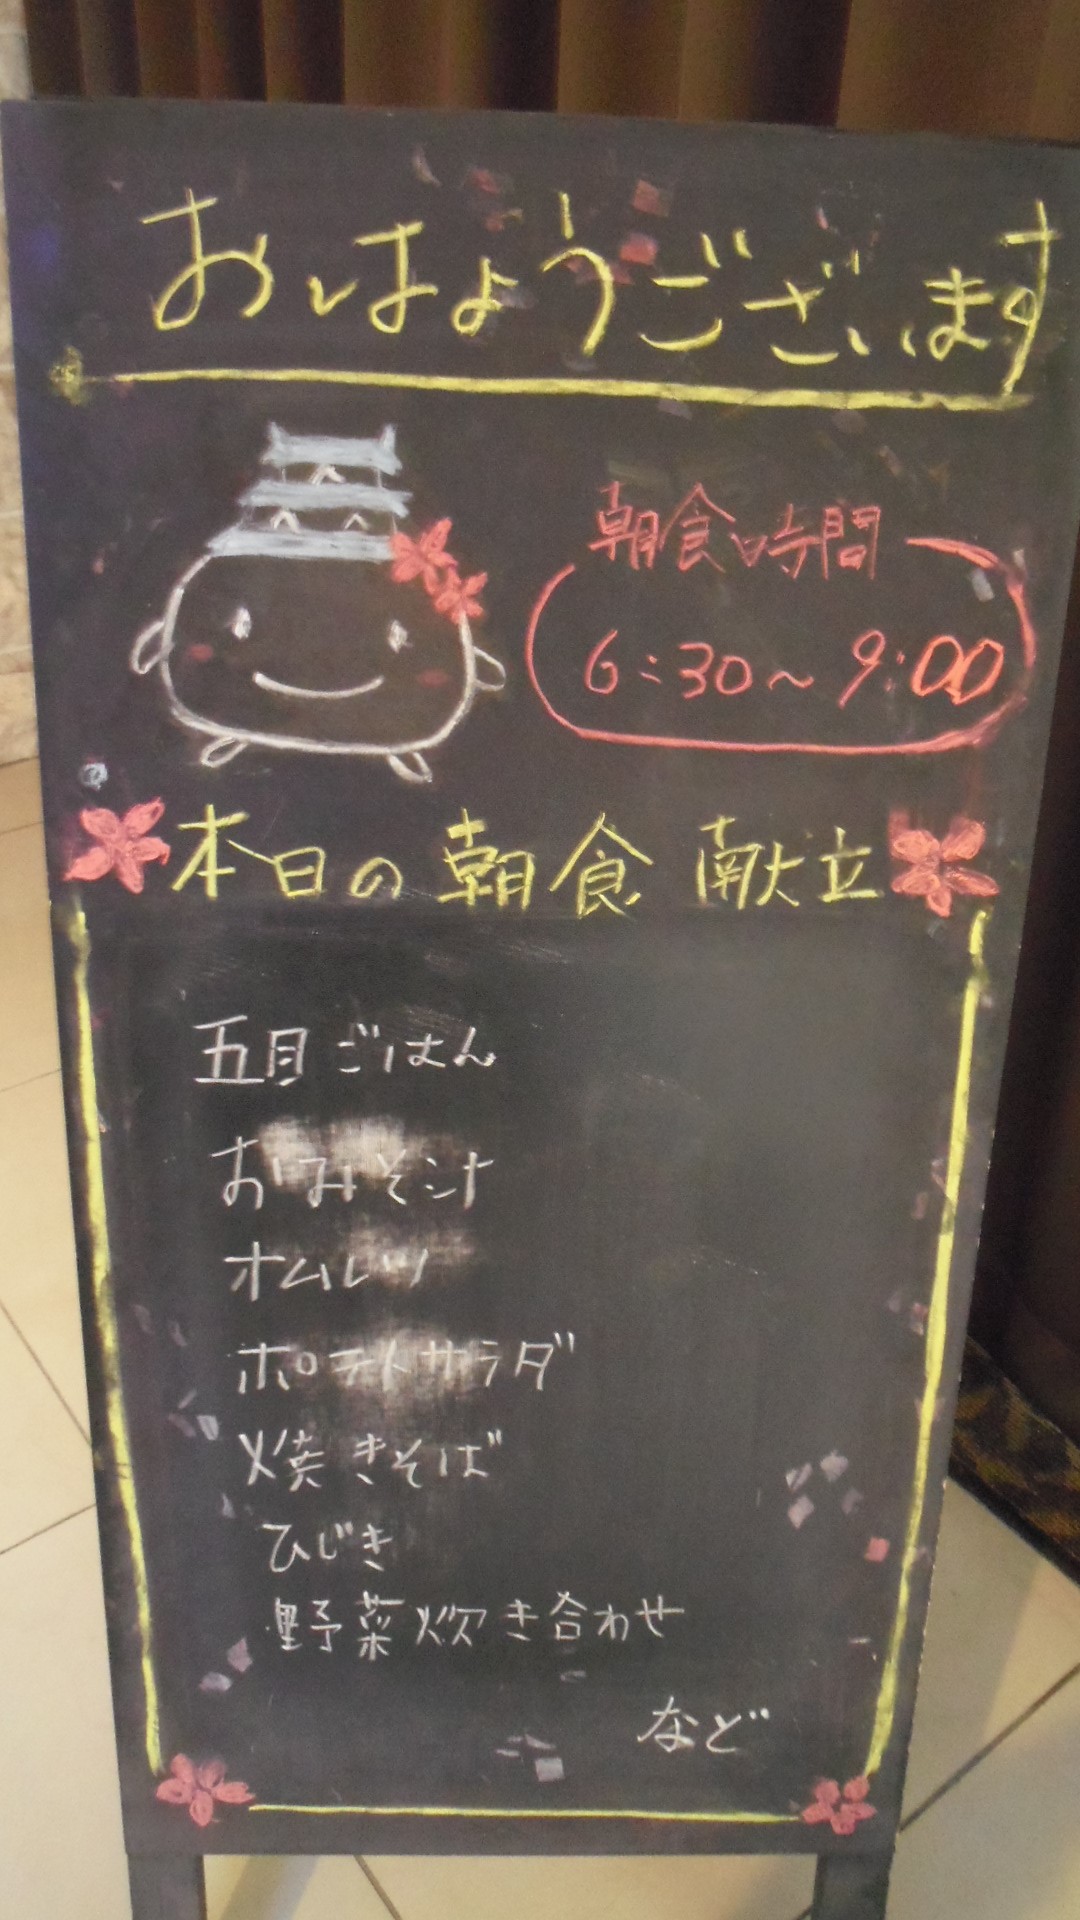 おはようございます
朝食時間
6:30～9:00
本日の朝食献立
五目ごはん
おみそ汁
オムレツ
ポテトサラダ
焼きそば
ひじき
野菜炊き合わせ
など